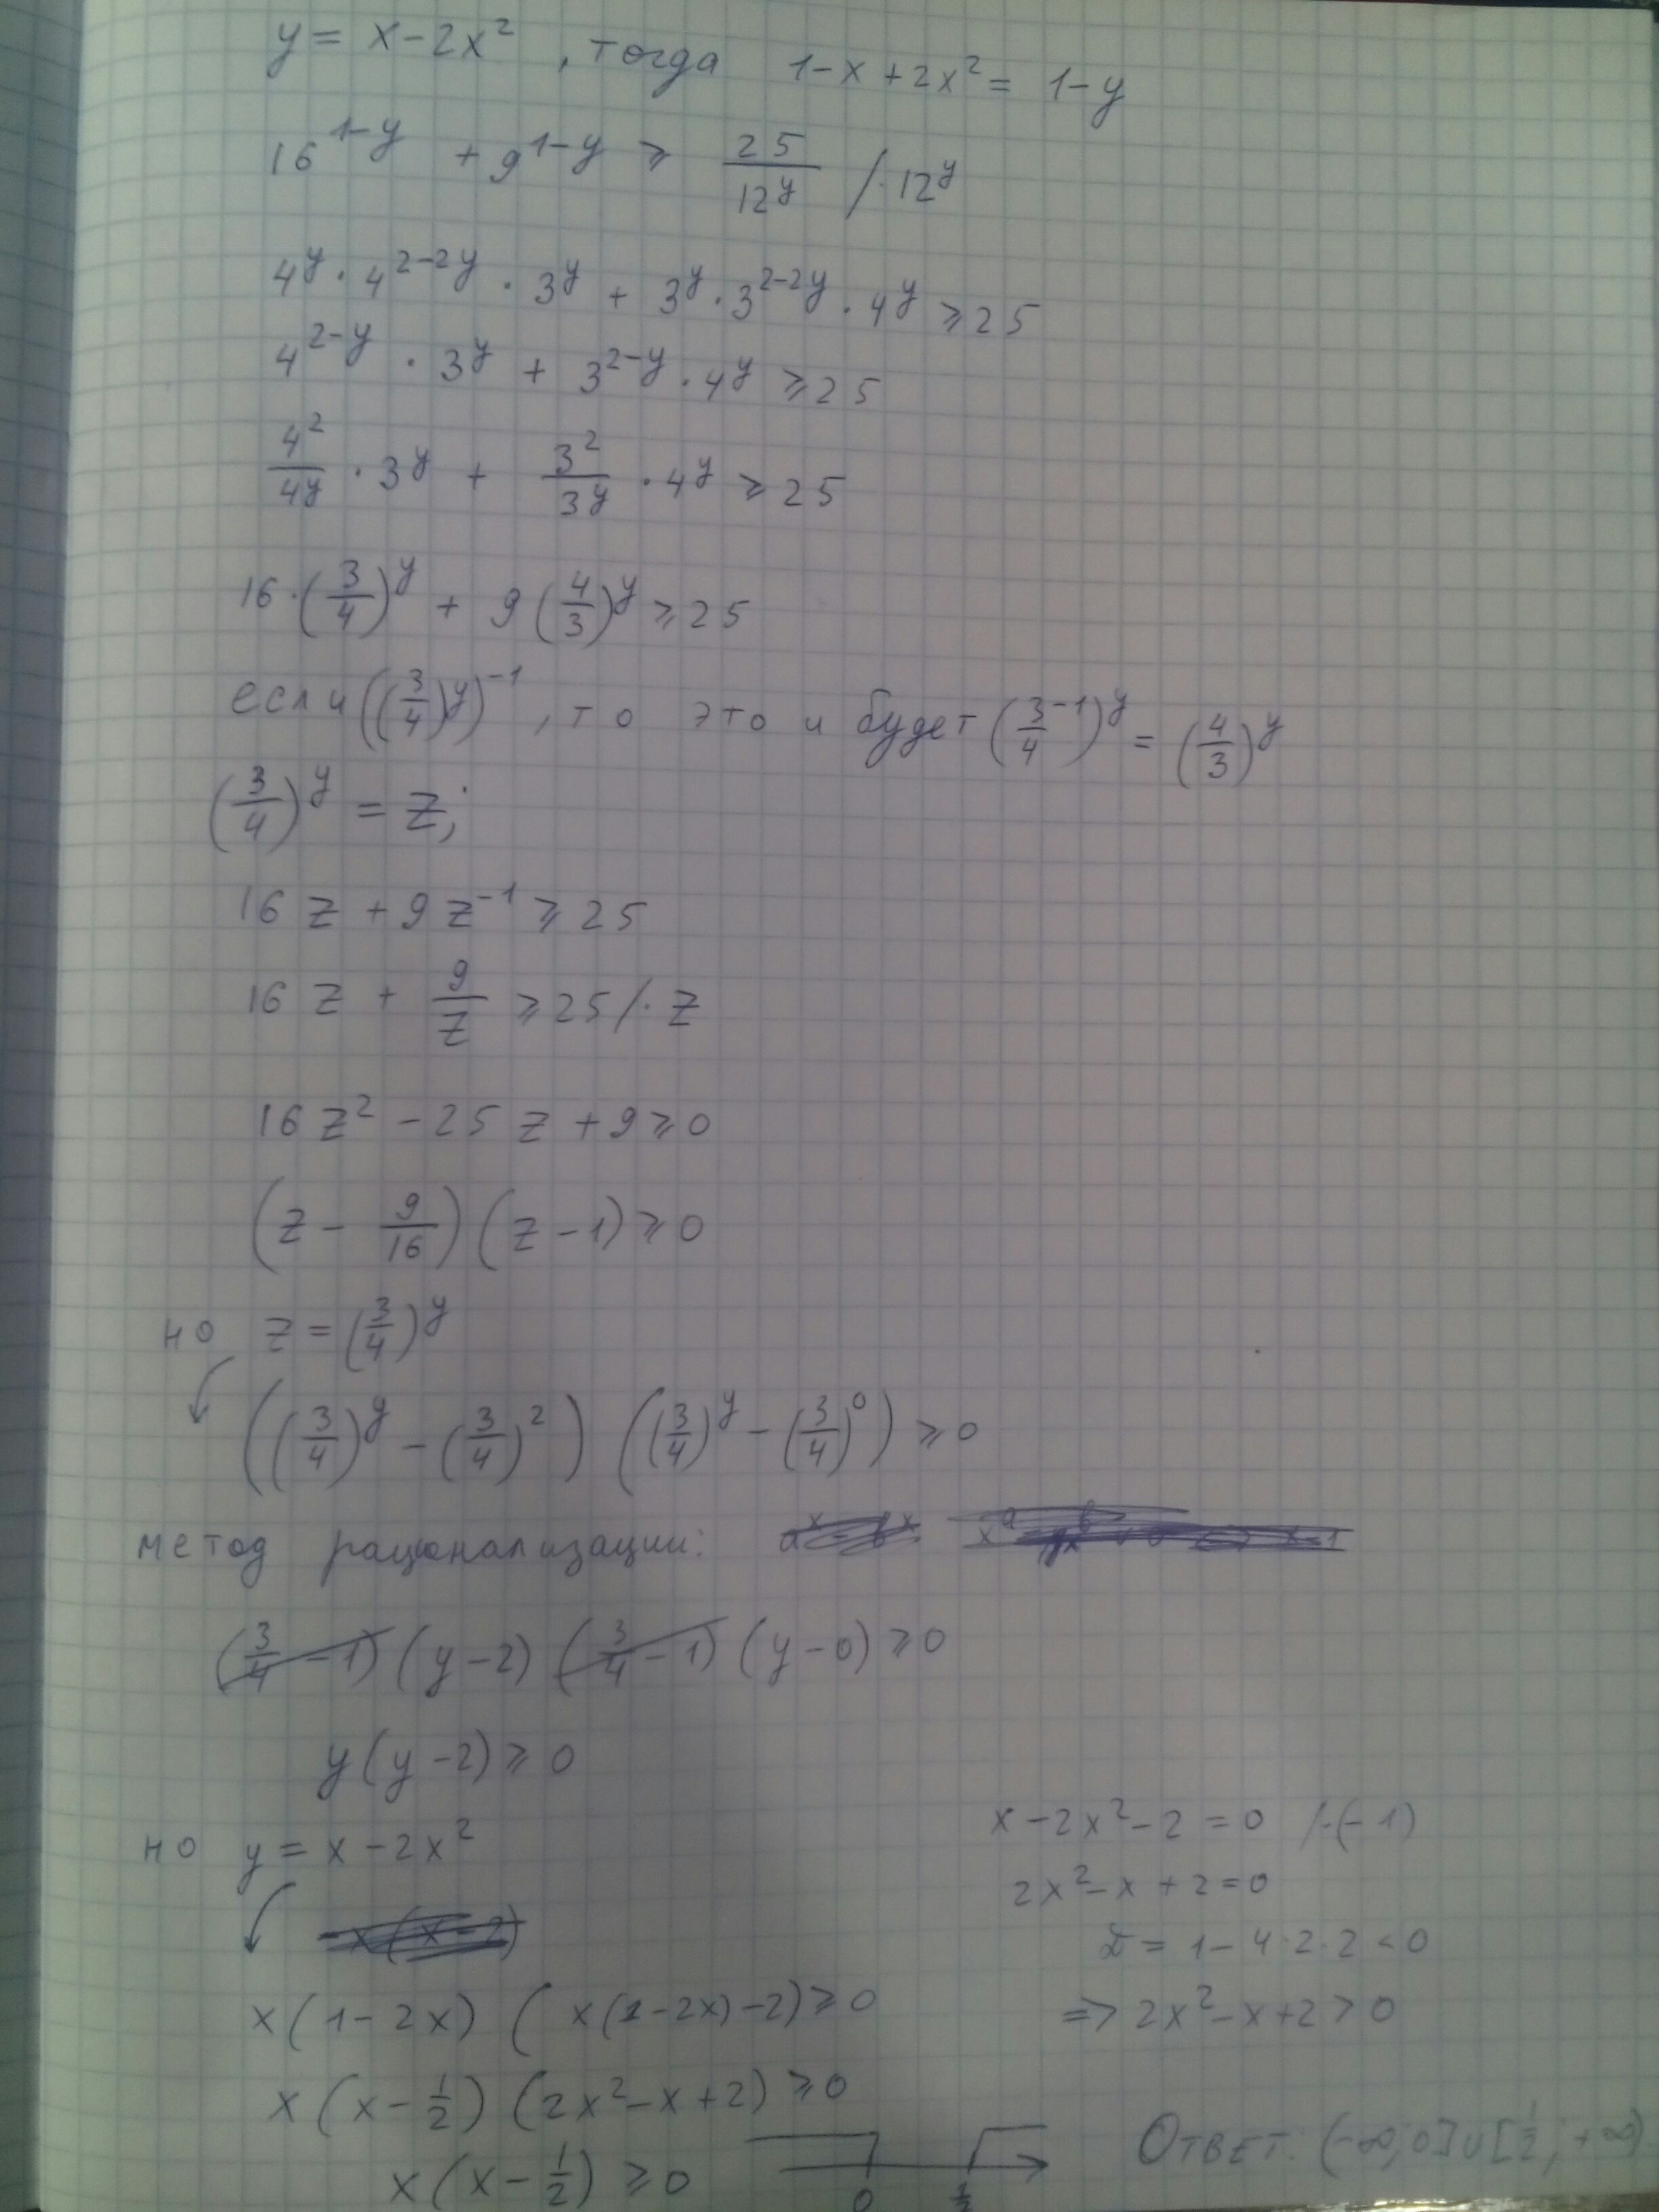 y = x - 2x² , тогда 1 - x + 2x² = 1 - y
16^(1-y) + 9^(1-y) ⩾ 25/12^y /· 12^y
4^y · 4^(2-2y) · 3^y + 3^y · 3^(2-2y) · 4^y ⩾ 25
4^(2-y) · 3^y + 3^(2-y) · 4^y ⩾ 25
4²/4^y · 3^y + 3²/3^y · 4^y ⩾ 25
16 · (3/4)^y + 9 (4/3)^y ⩾ 25
если ((3/4)^y)^(-1) , то это и будет (3/4^(-1))^y = (4/3)^y
(3/4)^y = z;
16 z + 9 z^(-1) ⩾ 25
16 z + 9/z ⩾ 25 /· z
16 z² - 25 z + 9 ⩾ 0
(z - 9/16) (z - 1) ⩾ 0
но z = (3/4)^y
((3/4)^y - (3/4)²) ((3/4)^y - (3/4)⁰) ⩾ 0
метод рационализации:
(3/4 - 1) (y - 2) (3/4 - 1) (y - 0) ⩾ 0
y (y - 2) ⩾ 0
но y = x - 2x²
x (1 - 2x) ( x (1 - 2x) - 2) ⩾ 0
x (x - 1/2) (2x² - x + 2) ⩾ 0
x (x - 1/2) ⩾ 0
0 1/2
x - 2x² - 2 = 0 /·(-1)
2x² - x + 2 = 0
D = 1 - 4·2·2 < 0
=> 2x² - x + 2 > 0
Ответ: (-∞; 0] ∪ [1/2; +∞)